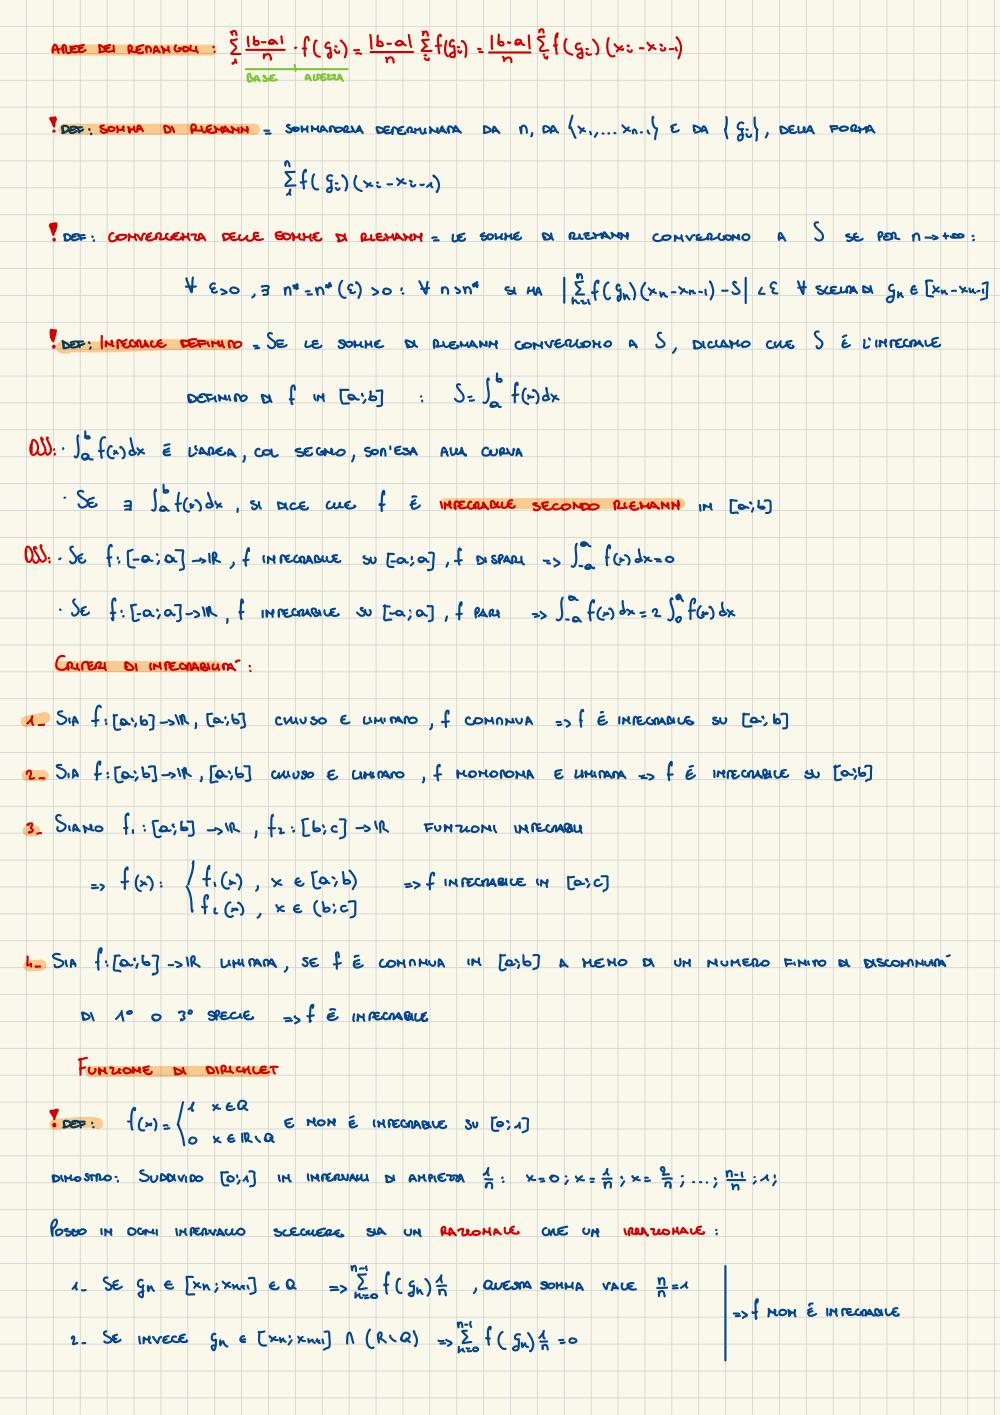 AREE DEI RETANGOLI : \sum_{1}^{n} \frac{|b-a|}{n} · f(ξi) = \frac{|b-a|}{n} \sum_{i}^{n} f(ξi) = \frac{|b-a|}{n} \sum_{i}^{n} f(ξi)(xi-xi-1)
BASE ALTEZZA
! DEF: SOMMA DI RIEMANN = SOMMATORIA DETERMINATA DA n, DA {x1,... xn-1} E DA {ξi}, DELLA FORMA
\sum_{1}^{n} f(ξi)(xi-xi-1)
! DEF: CONVERGENZA DELLE SOMME DI RIEMANN = LE SOMME DI RIEMANN CONVERGONO A S SE PER n→+∞ :
∀ ε>0, ∃ n*=n*(ε)>0 : ∀ n>n* SI HA |\sum_{k=1}^{n} f(ξk)(xk-xk-1) - S| < ε ∀ SCELTA DI ξk ∈ [xk-xk-1]
! DEF: INTEGRALE DEFINITO = SE LE SOMME DI RIEMANN CONVERGONO A S, DICIAMO CHE S È L'INTEGRALE
DEFINITO DI f IN [a;b] : S = \int_{a}^{b} f(x)dx
OSS: · \int_{a}^{b} f(x)dx È L'AREA, COL SEGNO, SOTT'ESA ALLA CURVA
· SE ∃ \int_{a}^{b} f(x)dx, SI DICE CHE f È INTEGRABILE SECONDO RIEMANN IN [a;b]
OSS: · SE f:[-a;a]→IR, f INTEGRABILE SU [-a;a], f DISPARI => \int_{-a}^{a} f(x)dx=0
· SE f:[-a;a]→IR, f INTEGRABILE SU [-a;a], f PARI => \int_{-a}^{a} f(x)dx = 2 \int_{0}^{a} f(x)dx
CRITERI DI INTEGRABILITA' :
1_ SIA f:[a;b]→IR, [a;b] CHIUSO E LIMITATO, f CONTINUA => f È INTEGRABILE SU [a;b]
2_ SIA f:[a;b]→IR, [a;b] CHIUSO E LIMITATO, f MONOTONA E LIMITATA => f È INTEGRABILE SU [a;b]
3_ SIANO f1:[a;b]→IR, f2:[b;c]→IR FUNZIONI INTEGRABILI
=> f(x): { f1(x), x ∈ [a;b) => f INTEGRABILE IN [a;c]
f2(x), x ∈ (b;c]
4_ SIA f:[a;b]→IR LIMITATA, SE f È CONTINUA IN [a;b] A MENO DI UN NUMERO FINITO DI DISCONTINUITA'
DI 1° O 3° SPECIE => f È INTEGRABILE
FUNZIONE DI DIRICHLET
! DEF: f(x) = { 1 x∈Q
0 x∈IR\Q E NON È INTEGRABILE SU [0;1]
DIMOSTRO: SUDDIVIDO [0;1] IN INTERVALLI DI AMPIEZZA \frac{1}{n} : x=0; x=\frac{1}{n}; x=\frac{2}{n}; ...; \frac{n-1}{n}; 1;
POSSO IN OGNI INTERVALLO SCEGLIERE SIA UN RAZIONALE CHE UN IRRAZIONALE :
1_ SE ξk ∈ [xk;xk+1] ∈ Q => \sum_{k=0}^{n-1} f(ξk)\frac{1}{n}, QUESTA SOMMA VALE \frac{n}{n}=1
=> f NON È INTEGRABILE
2_ SE INVECE ξk ∈ [xk;xk+1] ∩ (R\Q) => \sum_{k=0}^{n-1} f(ξk)\frac{1}{n} = 0